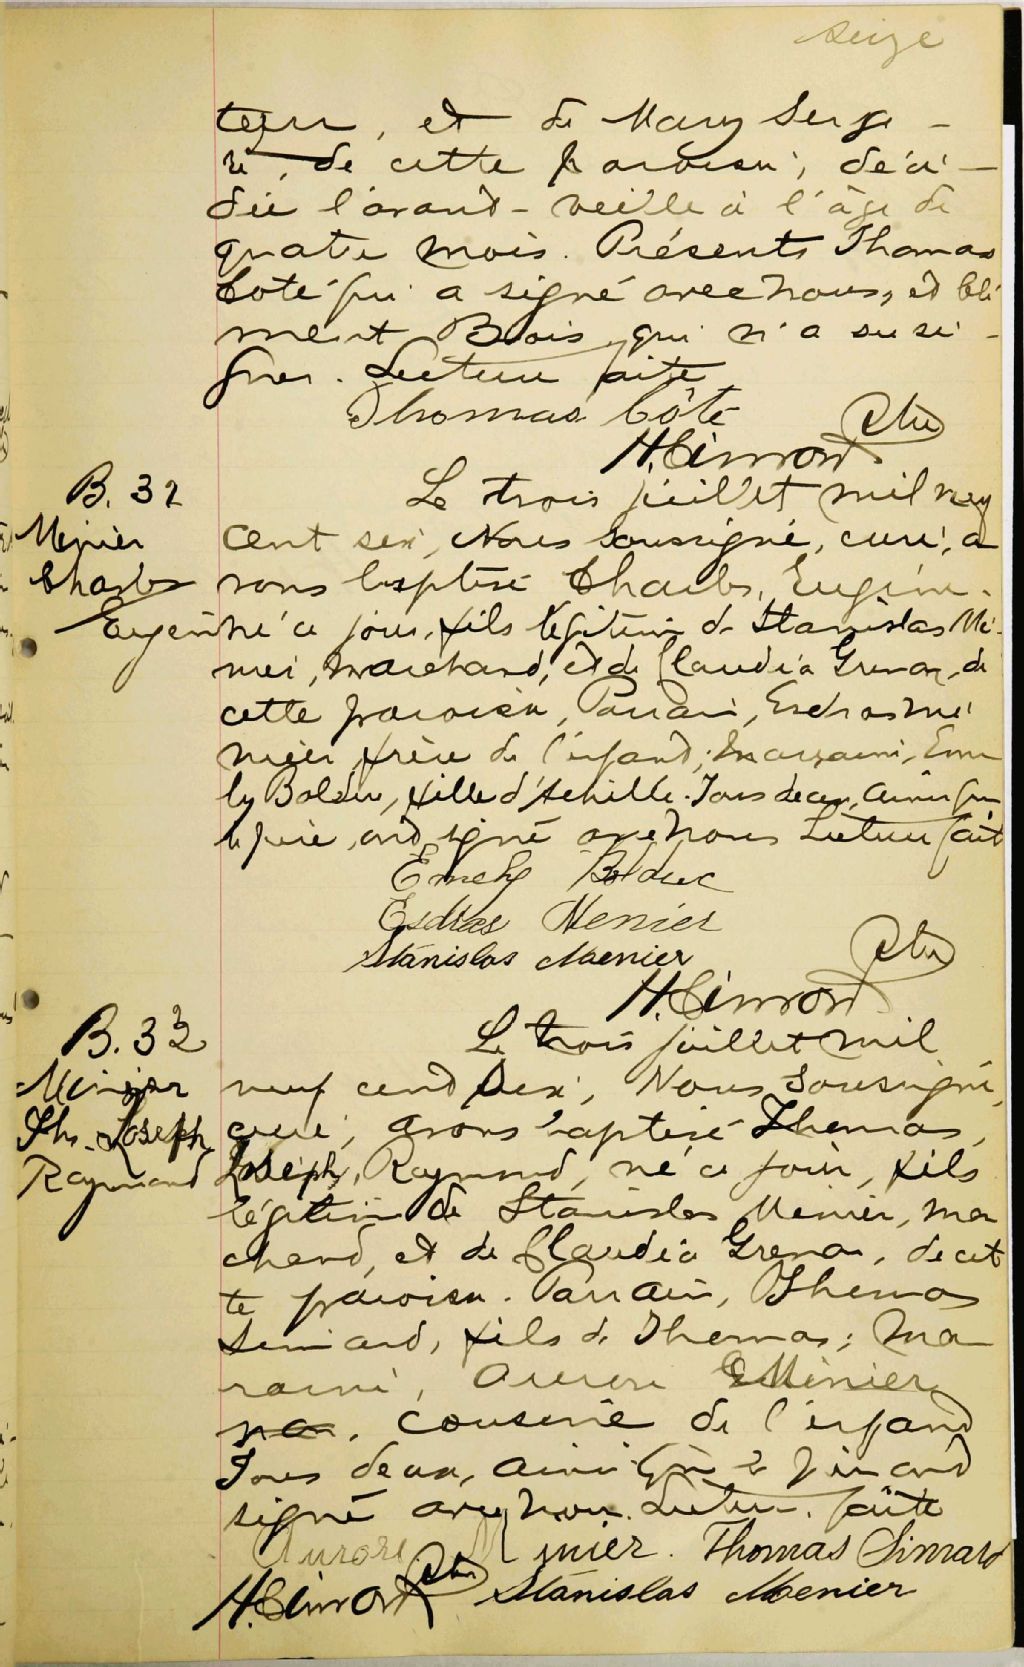 seize
teur, et de Mary Serge -
rie, de cette paroisse, décé -
dée l'avant-veille à l'âge de
quatre mois. Présents Thomas
Côté qui a signé avec nous, et Clé
ment Blais qui n'a su si -
gner. Lecture faite
Thomas Côté
H. Cimon Ptre
B. 32
Menier
Charles
Eugène
Le trois juillet mil neuf
cent six, Nous soussigné, curé, a
vons baptisé Charles, Eugène,
né ce jour, fils légitime de Stanislas Mé-
nier, marchand, et de Claudia Grenon, de
cette paroisse, Parrain, Esdras Mé
nier, frère de l'enfant; Marraine, Emé
ly Bolduc, fille d'Achille. Tous deux, ainsi que
le père, ont signé avec nous Lecture faite
Emely Bolduc
Esdras Menier
Stanislas Menier
H. Cimon Ptre
B. 33
Menier
Ths. Joseph
Raymond
Le trois juillet mil
neuf cent six, Nous soussigné,
curé, avons baptisé Thomas,
Joseph, Raymond, né ce jour, fils
légitime de Stanislas Menier, mar
chand, et de Claudia Grenon, de cet
te paroisse. Parrain, Thomas
Simard, fils de Thomas; Mar
raine, Aurore Minier
cousine de l'enfant
Tous deux, ainsi que le père ont
signé avec nous. Lecture faite
Aurore Minier. Thomas Simard
H. Cimon Ptre Stanislas Menier